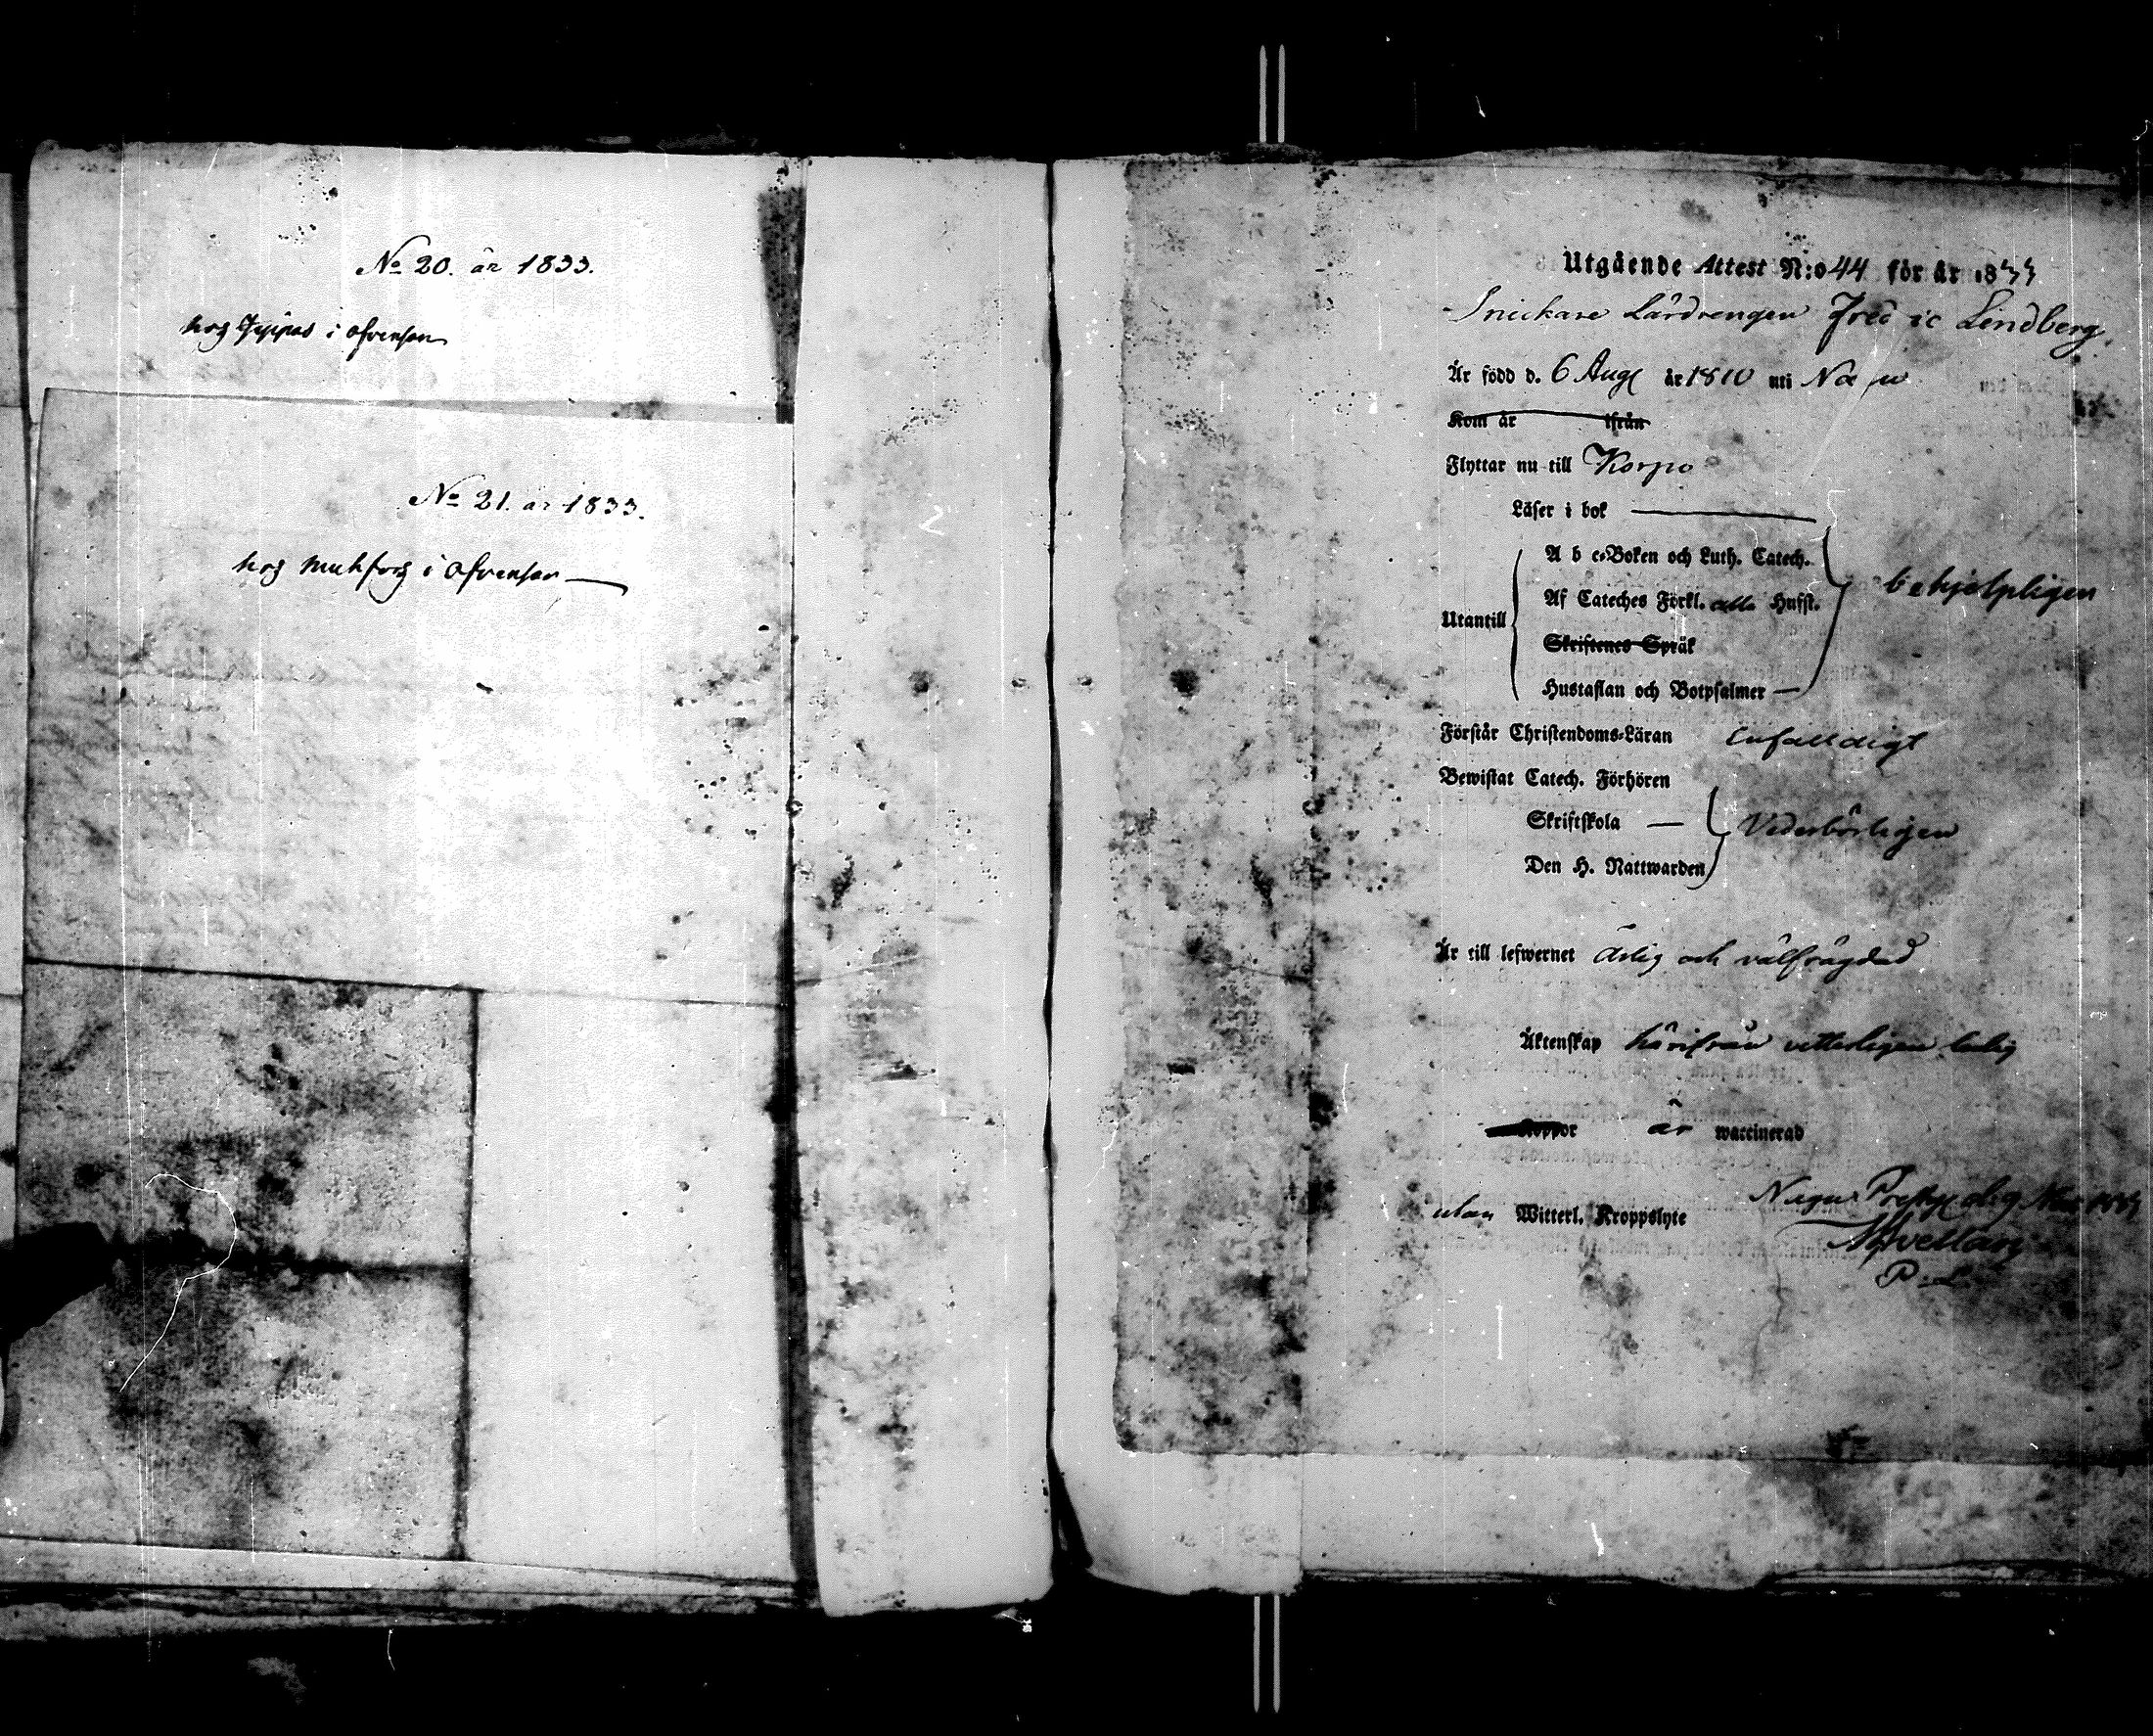 No 20. år 1833.
hos Jeppas i ofvensor
No 21. år 1833.
hos i ofvensor
Utgående Attest N:o 44 för år 1833
Snickare Lärdrengen Fredric Lindberg.
Är född d. 6 Aug år 1810 uti Nagu
Kom år ifrån
Flyttar nu till Korpo
Läser i bok
A b c-Boken och Luth. Catech.
behjelpligen
Af Cateches Förkl. alla Hufst.
Utantill
Skriftenes Språk
Hustaflan och Botpsalmer
Förstår Christendoms-Läran Enfalldigt
Bewistat Catech. Förhören
Skriftskola
Vederbörligen
Den H. Nattwarden
Är till lefwernet ärlig och välfrägdad
Äktenskap härifrån vetterligen ledig
Koppor är waccinerad
utan Witterl. Kroppslyte
Nagu d. 9 1833
P: L: